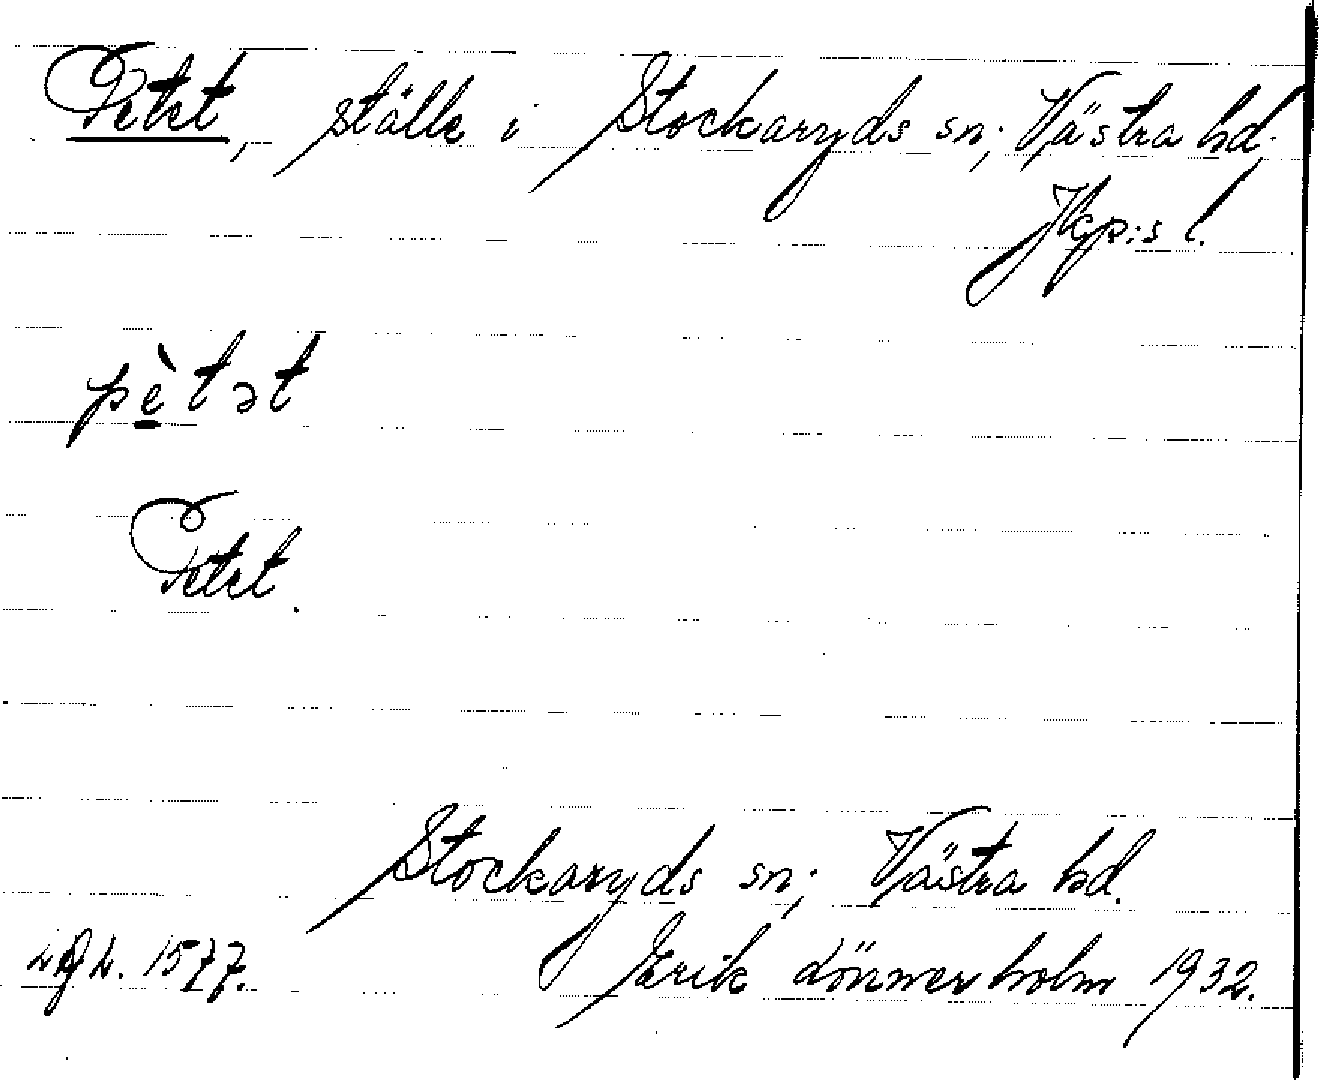 Petet, ställe i Stockaryds sn; Västra hd;
Jkp:s l.
pètət
Petet.
Stockaryds sn; Västra hd.
1577. Erik Lönnerholm 1932.